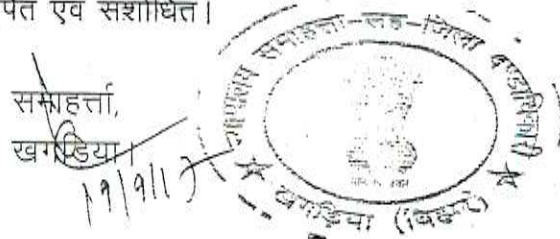 एवं संशोधित।
समाहर्त्ता,
खगड़िया।
19/9/17
समाहर्त्ता-सह-जिला दण्डाधिकारी
खगड़िया (बिहार)